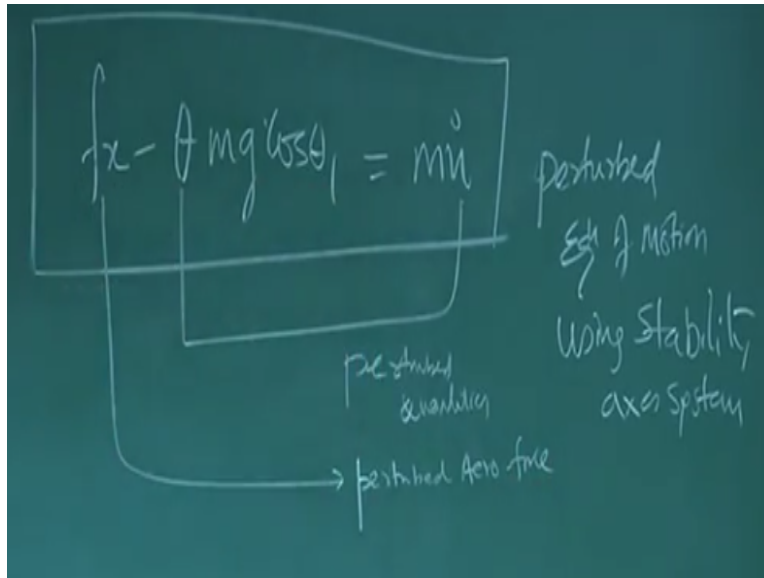 fx - θ mg cosθ₁ = mu̇
perturbed
Eqn of Motion
using Stability
axes system
perturbed
quantities
perturbed Aero force